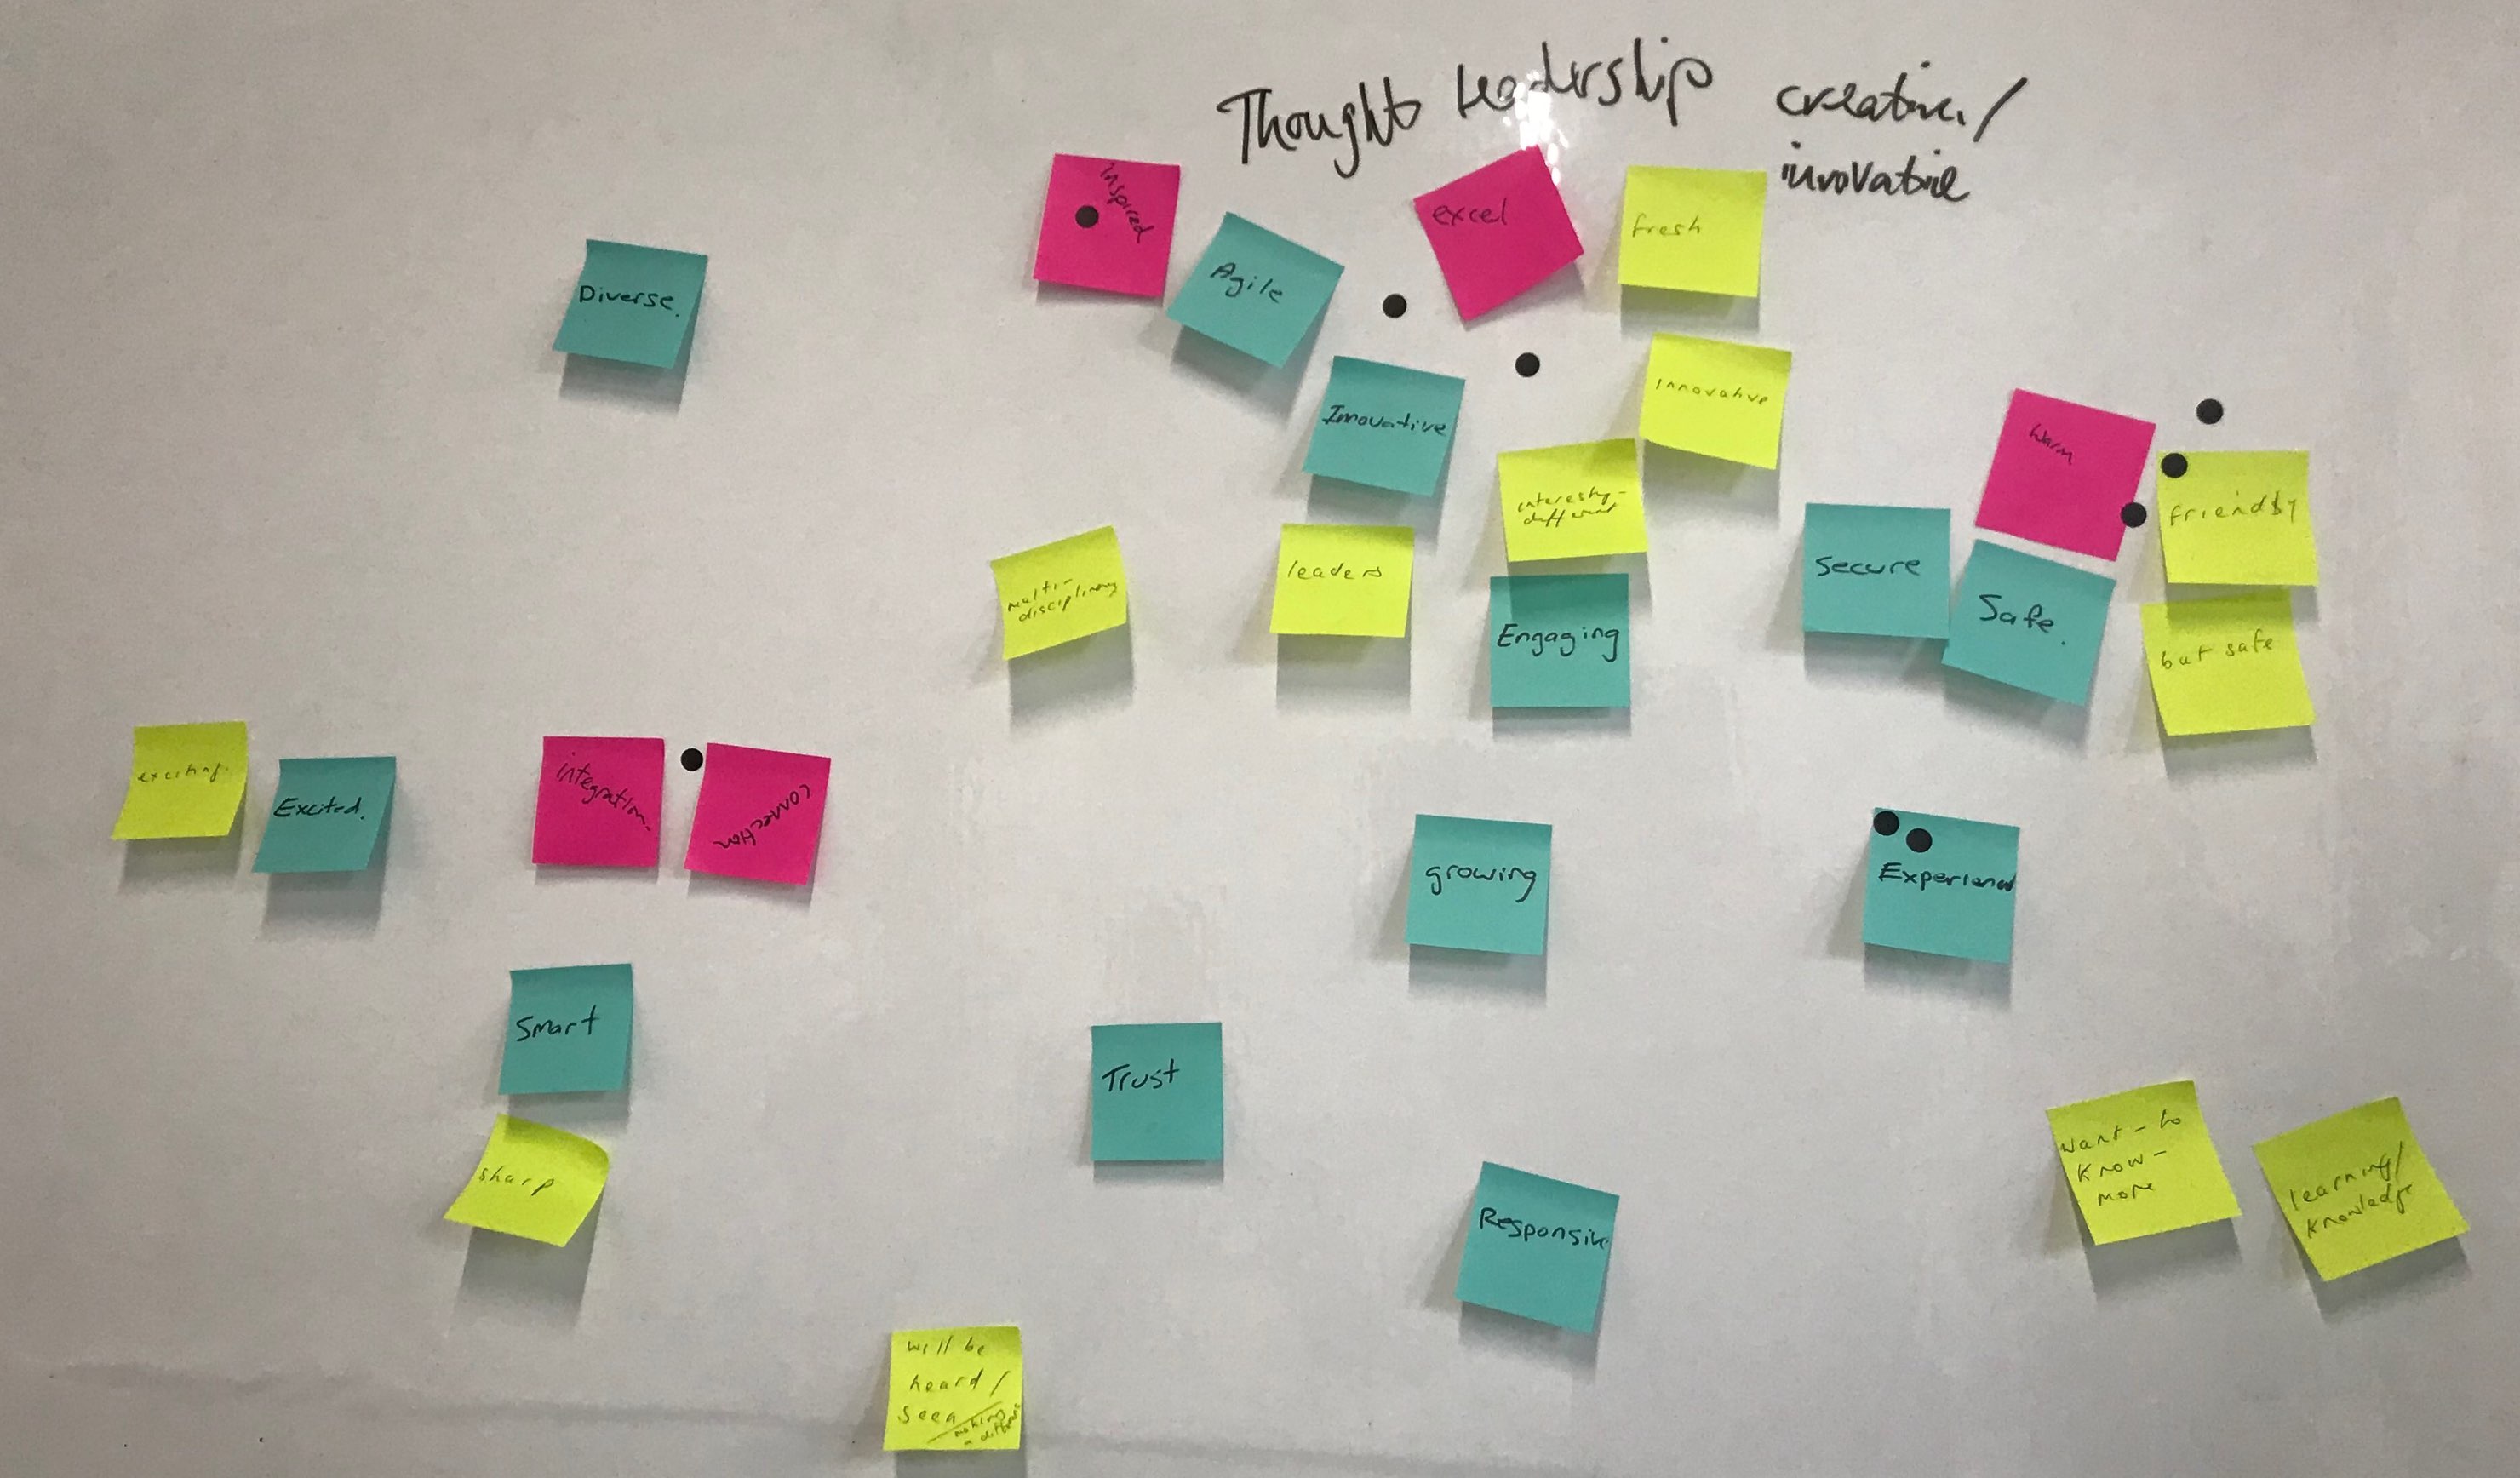 Thought Leadership
creative/
innovative
Inspired
Agile
excel
fresh
Diverse.
Innovative
Innovative
interesting-
different
Warm
friendly
Secure
Safe.
but safe
multi-
disciplinary
leaders
Engaging
exciting.
Excited.
integration.
connection
growing
Experienced
Smart
sharp
Trust
Responsive
want-to
know-
more
learning/
knowledge
will be
heard/
seen
making
a difference